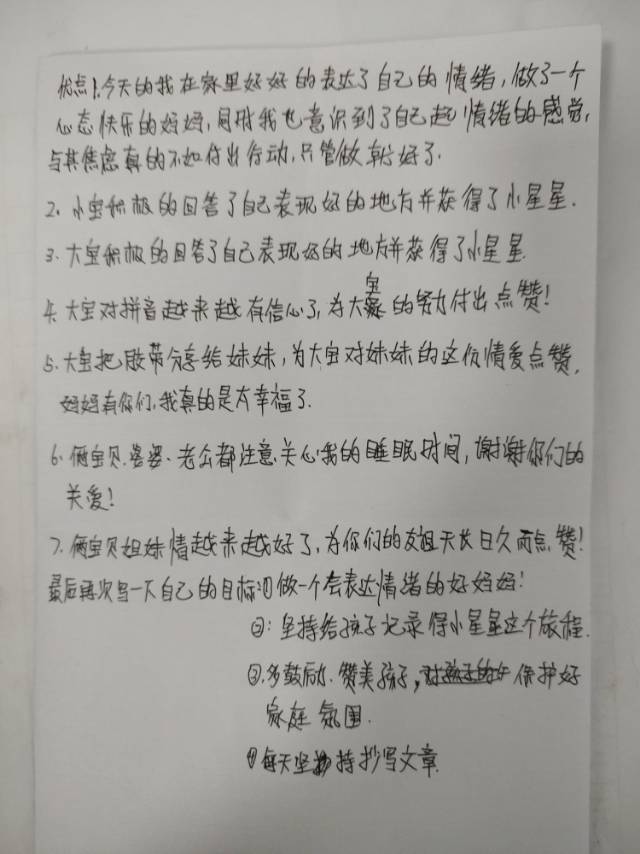 优点1.今天的我在家里好好的表达了自己的情绪,做了一个
心态快乐的妈妈,同时我也意识到了自己起情绪的感觉,
与其焦虑真的不如付出行动,只管做就好了.
2. 小宝积极的回答了自己表现好的地方并获得了小星星.
3. 大宝积极的回答了自己表现好的地方并获得了小星星.
4. 大宝对拼音越来越有信心了,为大宝的努力付出点赞!
5. 大宝把胶带分享给妹妹,为大宝对妹妹的这份情爱点赞,
妈妈有你们,我真的是太幸福了.
6. 俩宝贝.婆婆、老公都注意关心我的睡眠时间,谢谢你们的
关爱!
7. 俩宝贝姐妹情越来越好了,为你们的友谊天长日久而点赞!
最后再次写一下自己的目标:①做一个会表达情绪的好妈妈!
②:坚持给孩子记录得小星星这个旅程.
③.多鼓励.赞美孩子,保护好
家庭氛围.
④每天坚持抄写文章.